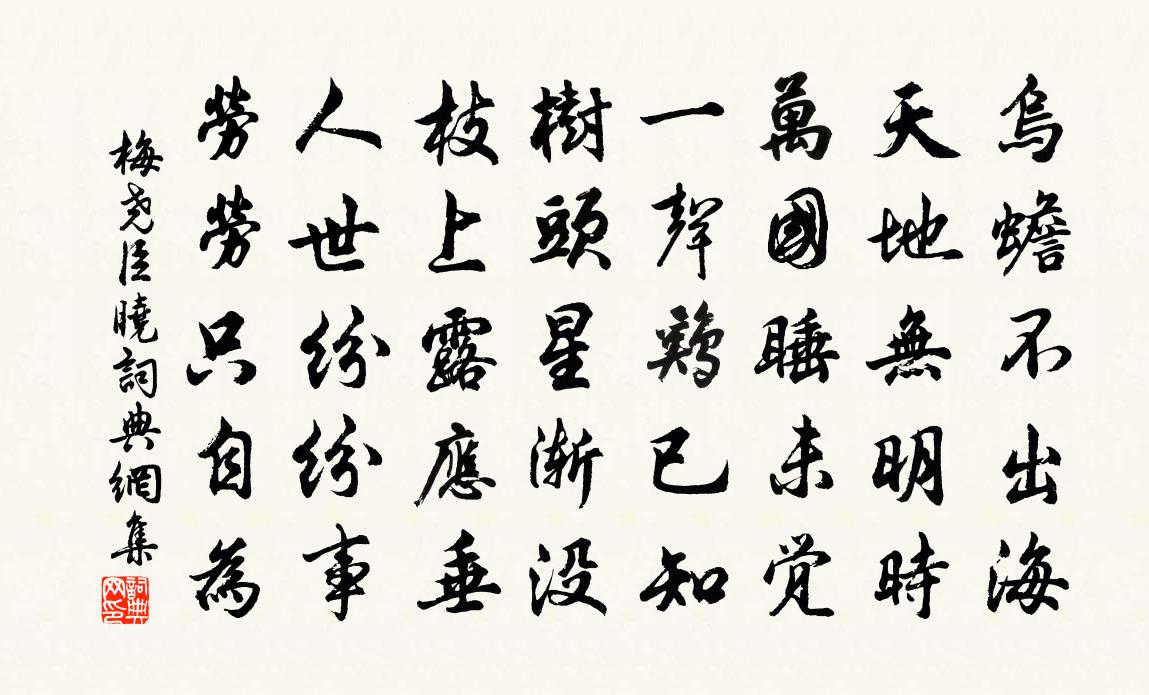 烏蟾不出海
天地無明時
萬國睡未覺
一聲鷄已知
樹頭星漸没
枝上露應垂
人世紛紛事
勞勞只自為
梅尧臣曉詞典網集
詞典